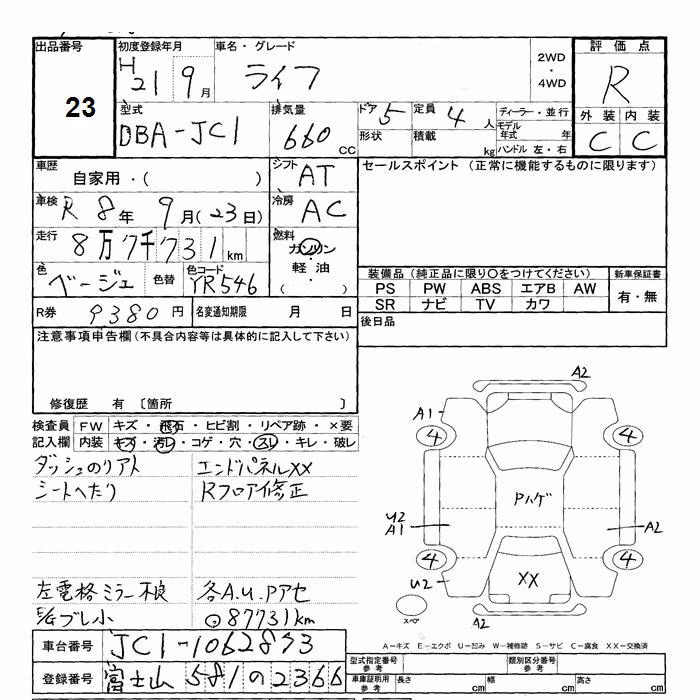 出品番号 初度登録年月 車名・グレード 評価点
23 H21 9月 ライフ 2WD・4WD R
型式 排気量 ドア 5 定員 4人 ディーラー・並行 外装 内装
DBA-JC1 660CC 形状 積載 kg モデル年式 年 C C
ハンドル 左・右
車歴 自家用・( ) シフト AT セールスポイント (正常に機能するものに限ります)
車検 R8年 9月(23日) 冷房 AC
走行 8万7千731km 燃料 ガソリン 軽油・( )
色 ベージュ 色替 色コード YR546 装備品(純正品に限り〇をつけてください) 新車保証書
PS PW ABS エアB AW 有・無
SR ナビ TV カワ
R券 9380円 名変通知期限 月 日 後日品
注意事項申告欄(不具合内容等は具体的に記入して下さい)
修復歴 有 〔箇所 〕
検査員 FW キズ・飛石・ヒビ割・リペア跡・×要
記入欄 内装 キズ・汚レ・コゲ・穴・スレ・キレ・破レ
ダッシュのリアト エンドパネルXX
シートへたり Rフロア修正
左電格ミラー不良 各A.U.Pアセ
F/Gブレ小 87731km
A2
A1
4 4
Pハゲ
U2 A1 A2
4 4
U2 XX
スペア A2
A-キズ E-エクボ U-凹み W-補修跡 S-サビ C-腐食 XX-交換済
車台番号 JC1-1062893 型式指定番号 参考 類別区分番号 参考
登録番号 富士山 581 の 2366 車庫証明用 参考 長さ cm 幅 cm 高さ cm